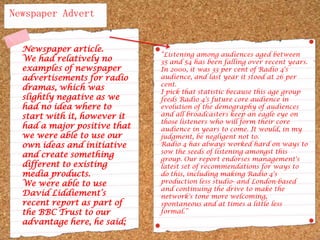 Newspaper Advert
Newspaper article.
We had relatively no
examples of newspaper
advertisements for radio
dramas, which was
slightly negative as we
had no idea where to
start with it, however it
had a major positive that
we were able to use our
own ideas and initiative
and create something
different to existing
media products.
We were able to use
David Liddiement's
recent report as part of
the BBC Trust to our
advantage here, he said;
"Listening among audiences aged between
35 and 54 has been falling over recent years.
In 2000, it was 33 per cent of Radio 4's
audience, and last year it stood at 26 per
cent.
I pick that statistic because this age group
feeds Radio 4's future core audience in
evolution of the demography of audiences
and all broadcasters keep an eagle eye on
those listeners who will form their core
audience in years to come. It would, in my
judgment, be negligent not to.
Radio 4 has always worked hard on ways to
sow the seeds of listening amongst this
group. Our report endorses management's
latest set of recommendations for ways to
do this, including making Radio 4's
production less studio- and London-based
and continuing the drive to make the
network's tone more welcoming,
spontaneous and at times a little less
formal."